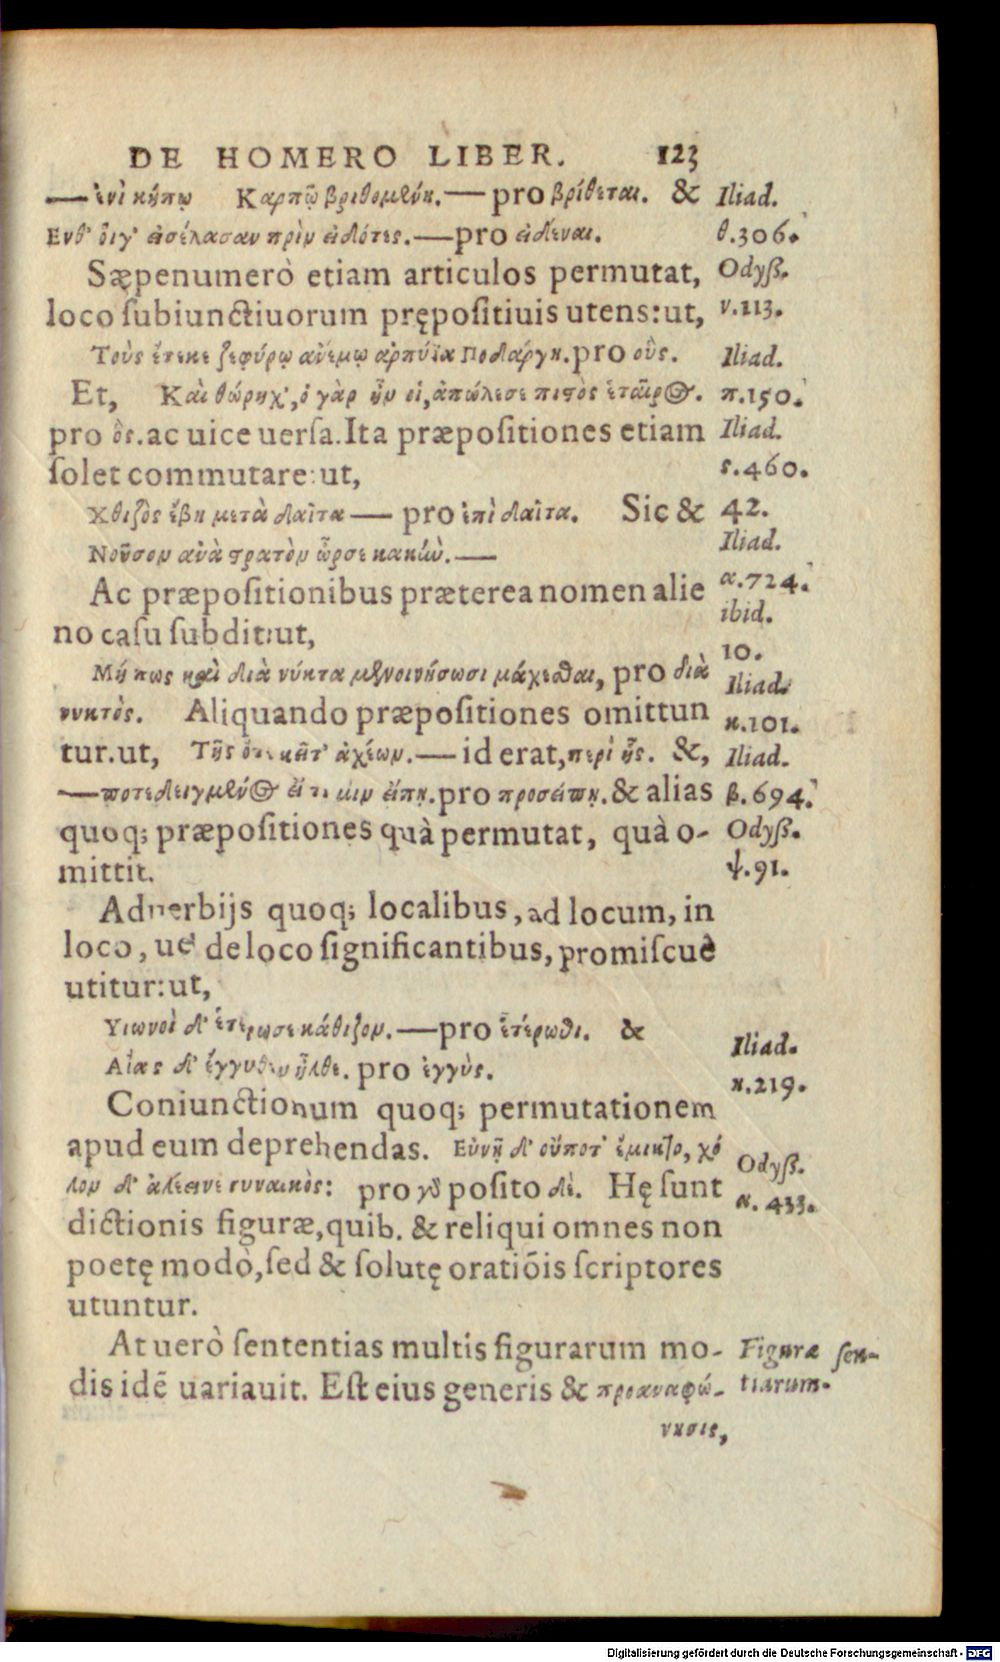 DE HOMERO LIBER. 123
— ἐνὶ κήπῳ Καρπῷ βριθομένη.— pro βρίθεται. &
Ενθ' οἵγ' εἰσέλασαν πρὶν εἰδότες.—pro εἰδέναι.
Sæpenumerò etiam articulos permutat,
loco ſubiunctiuorum prępoſitiuis utens: ut,
Τοὺς ἔτεκε ζεφύρῳ ἀνέμῳ ἁρπύϊα Ποδάργη. pro οὓς.
Et, Καὶ θώρηχ', ὁ γὰρ ἦν οἱ, ἀπώλεσε πιστὸς ἑταῖρος.
pro ὃς. ac uice uerſa. Ita præpoſitiones etiam
ſolet commutare: ut,
Χθιζὸς ἔβη μετὰ δαῖτα — pro ἐπὶ δαῖτα. Sic &
Νοῦσον ἀνὰ στρατὸν ὦρσε κακὴν.—
Ac præpoſitionibus præterea nomen alie
no caſu ſubdit: ut,
Μή πως καὶ διὰ νύκτα μενοινήσωσι μάχεσθαι, pro διὰ
νυκτὸς. Aliquando præpoſitiones omittun
tur. ut, Τῆς ὅγε κεῖτ' ἀχέων.— id erat, περὶ ἧς. &,
—ποτιδέγμενος εἴ τι μιν εἴπῃ. pro προσείπῃ. & alias
quoq; præpoſitiones quà permutat, quà o-
mittit.
Aduerbijs quoq; localibus, ad locum, in
loco, uel de loco ſignificantibus, promiſcuè
utitur: ut,
Υιωνοὶ δ' ἑτέρωσε κάθιζον.—pro ἑτέρωθι. &
Αἴας δ' ἐγγύθεν ἦλθε. pro ἐγγὺς.
Coniunctionum quoq; permutationem
apud eum deprehendas. Εὐνῇ δ' οὔποτ' ἔμικτο, χό
λον δ' ἀλέεινε γυναικός: pro γὰρ poſito δέ. Hę ſunt
dictionis figuræ, quib. & reliqui omnes non
poetę modò, ſed & ſolutę oratiōis ſcriptores
utuntur.
At uerò ſententias multis figurarum mo-
dis idē uariauit. Eſt eius generis & προαναφώ-
νησις,
Iliad.
θ.306.
Odyſſ.
ν.113.
Iliad.
π.150.
Iliad.
ρ.460.
42.
Iliad.
α.724.
ibid.
10.
Iliad.
κ.101.
Iliad.
β.694.
Odyſſ.
ψ.91.
Iliad.
η.219.
Odyſſ.
α. 433.
Figuræ ſen-
tiarum.
Digitalisierung gefördert durch die Deutsche Forschungsgemeinschaft - DFG